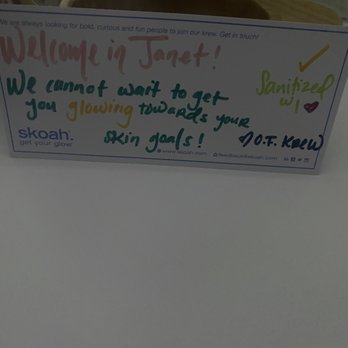 We are always looking for bold, curious and fun people to join our krew. Get in touch!
Welcome in Janet!
We cannot wait to get
you glowing towards your
skin goals!
Sanitized
w/
O.F. Krew
skoah.
get your glow
www.skoah.com